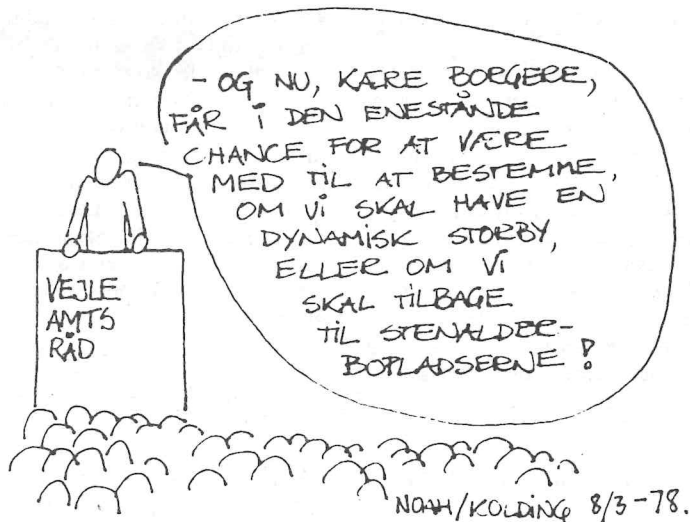 - OG NU, KÆRE BORGERE,
FÅR I DEN ENESTÅNDE
CHANCE FOR AT VÆRE
MED TIL AT BESTEMME,
OM VI SKAL HAVE EN
DYNAMISK STORBY,
ELLER OM VI
SKAL TILBAGE
TIL STENALDER-
BOPLADSERNE!
VEJLE
AMTS
RÅD
NOAH/KOLDING 8/3-78.